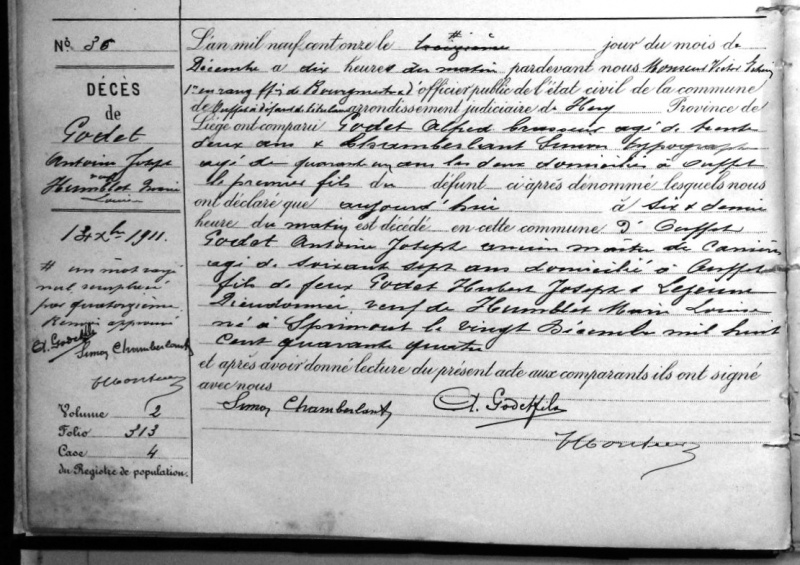 No. 36
DÉCÈS
de
Godet
Antoine Joseph
Humblet Marie
Louise
13 Xbre 1911.
# un mot rayé
nul remplacé
par quatorzième
Renvoi approuvé
A. Godet fils
Simon Chamberlant
Volume 2
Folio 313
Case 4
du Registre de population.
L'an mil neuf cent onze le treizième # jour du mois de
Décembre à dix heures du matin pardevant nous Monsieur Victor
1er en rang ffons de Bourgmestre d'officier public de l'état civil de la commune
de Ouffet à défaut de titulaire arrondissement judiciaire de Huy Province de
Liège ont comparu Godet Alfred brasseur âgé de trente
deux ans & Chamberlant Simon typographe
âgé de quarante un ans les deux domiciliés à Ouffet
le premier fils du défunt ci après dénommé lesquels nous
ont déclaré que aujourd'hui à six & demie
heure du matin est décédé en cette commune d'Ouffet
Godet Antoine Joseph ancien maître de carrières
âgé de soixante sept ans domicilié à Ouffet
fils de feux Godet Hubert Joseph & Lejeune
Dieudonnée veuf de Humblet Marie Louise
né à Sprimont le vingt Décembre mil huit
cent quarante quatre
et après avoir donné lecture du présent acte aux comparants ils ont signé
avec nous
Simon Chamberlant A. Godet fils